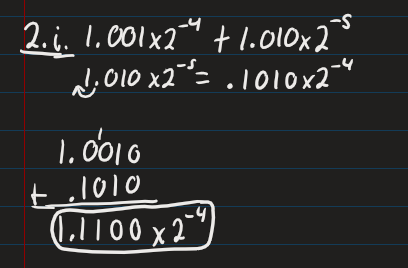 2.i. 1.001x2^-4 + 1.010x2^-5
1.010x2^-5 = .1010x2^-4
1
1.0010
+ .1010
1.1100 x 2^-4